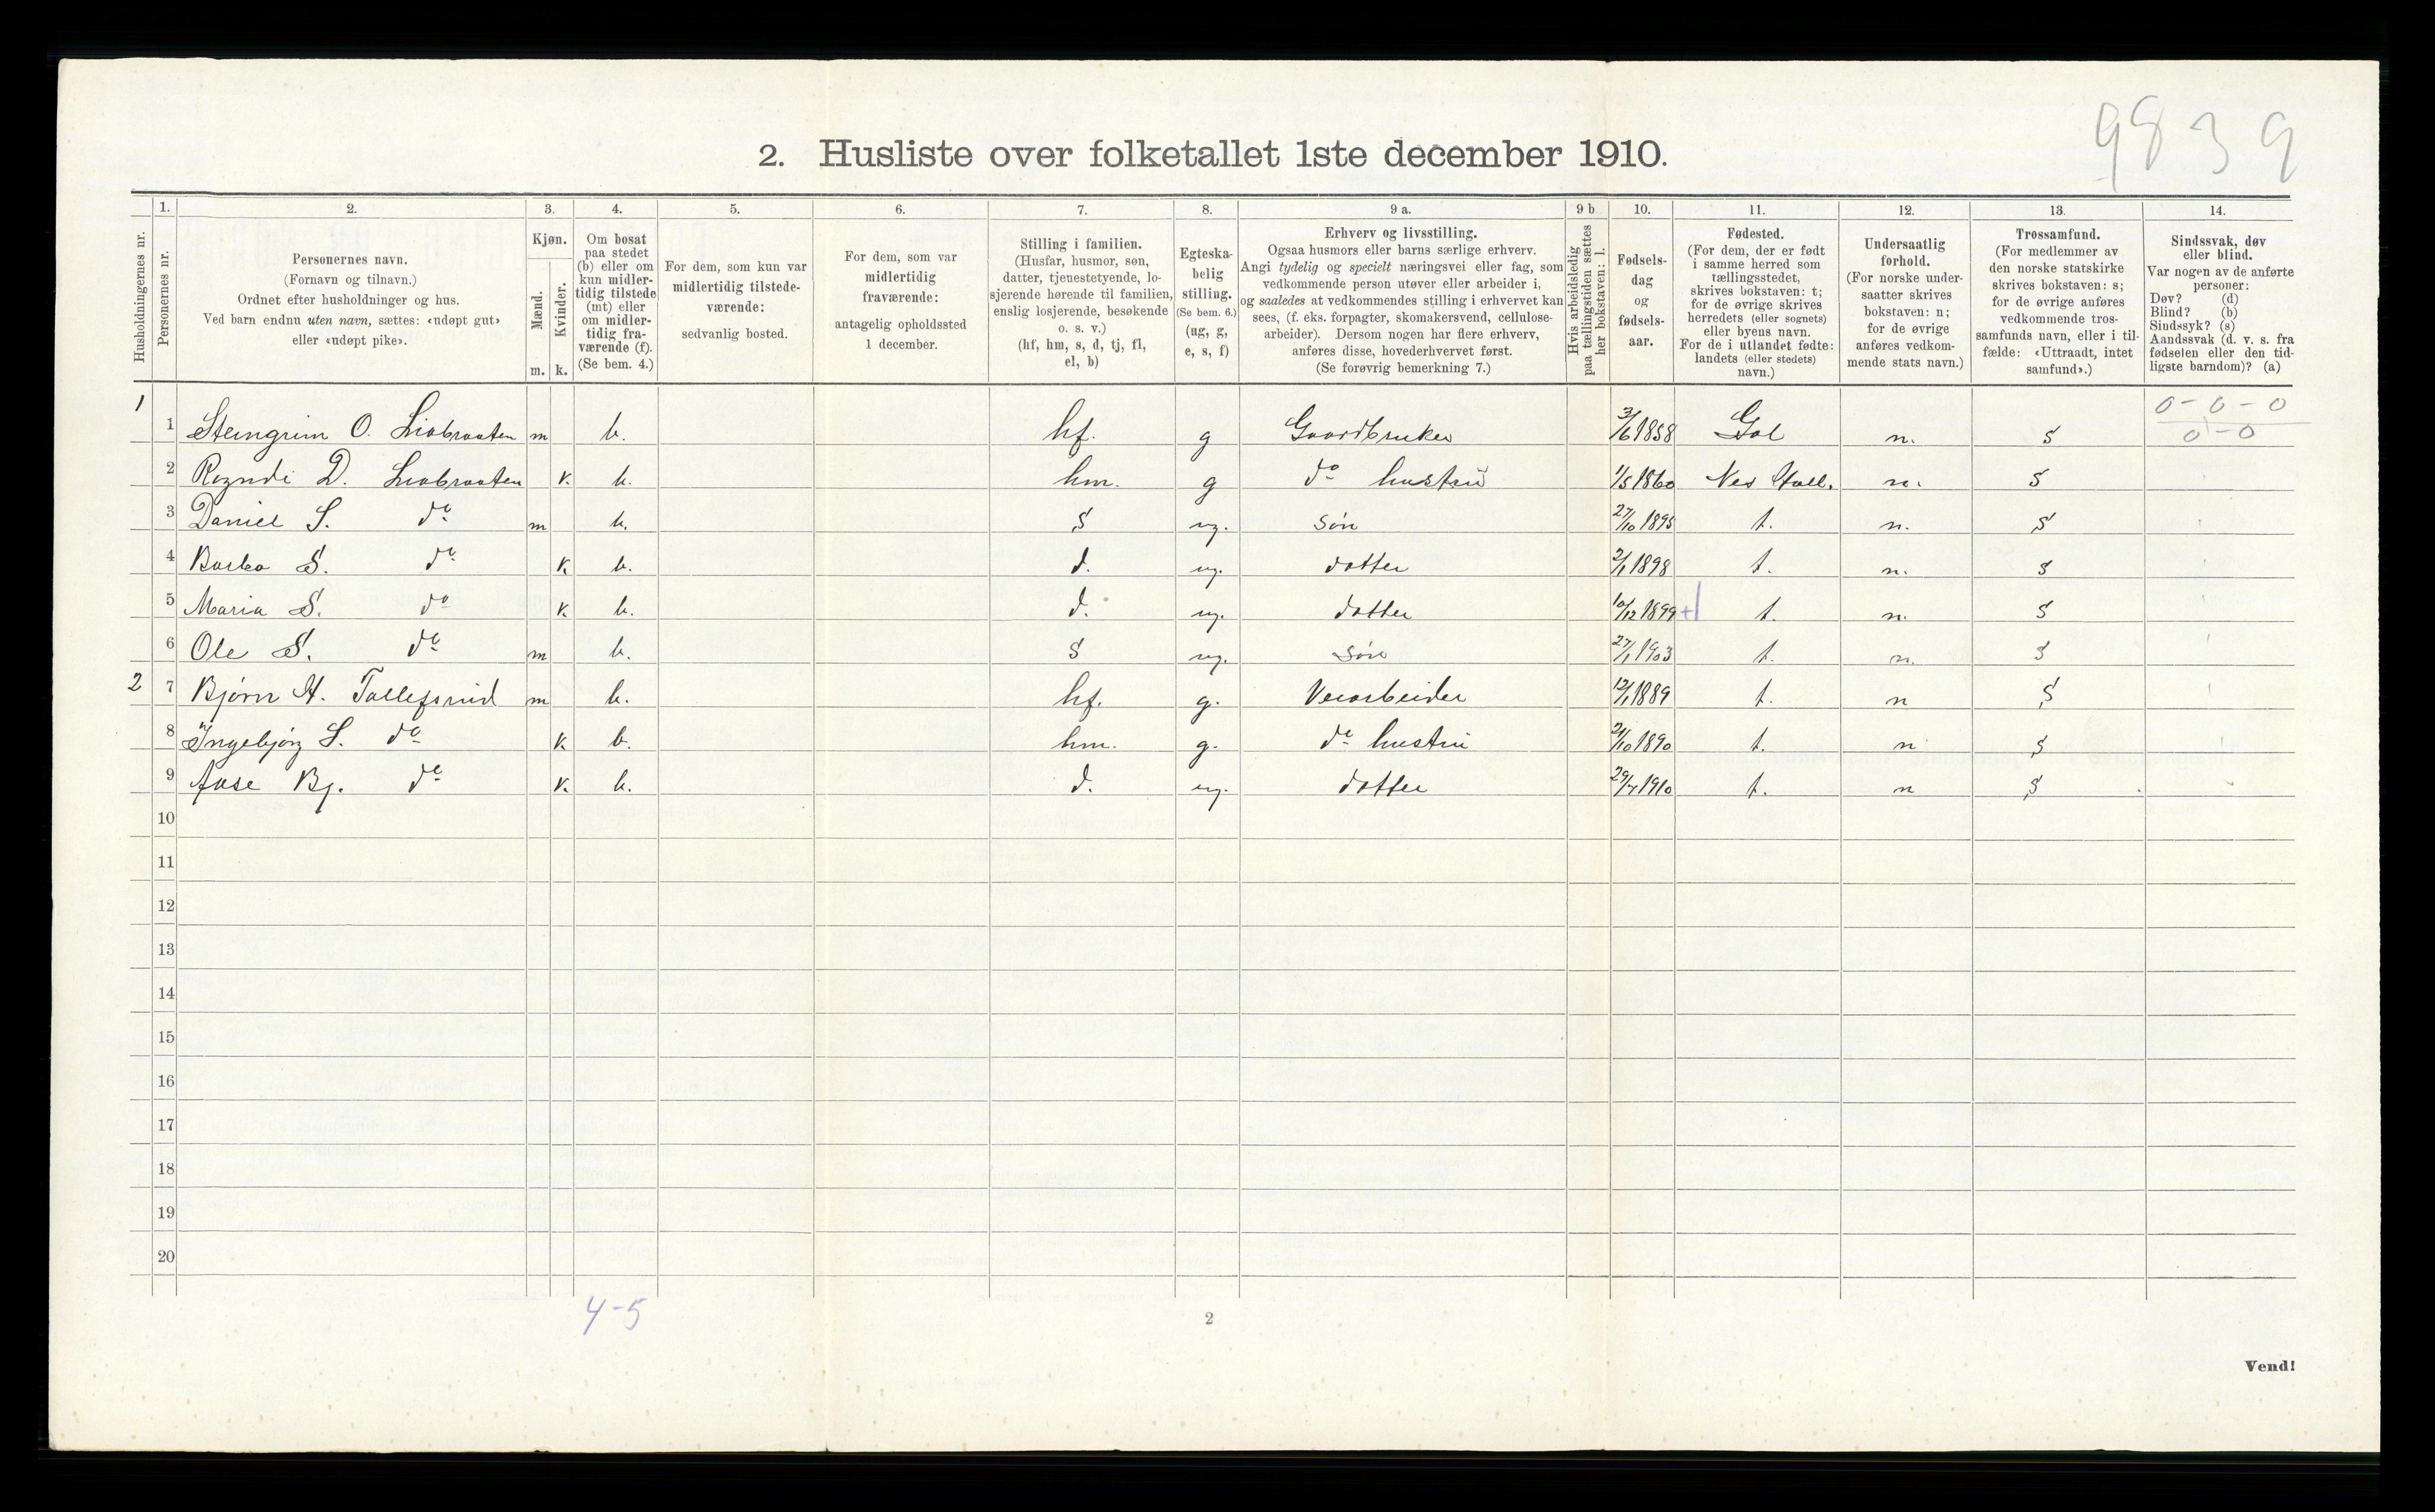 9839
2. Husliste over folketallet 1ste december 1910.
Husholdningernes nr.
1. Personernes nr.
2. Personernes navn.
(Fornavn og tilnavn.)
Ordnet efter husholdninger og hus.
Ved barn endnu uten navn, sættes: «udøpt gut»
eller «udøpt pike».
3. Kjøn.
Mænd. m.
Kvinder. k.
4. Om bosat
paa stedet
(b) eller om
kun midler-
tidig tilstede
(mt) eller
om midler-
tidig fra-
værende (f).
(Se bem. 4.)
5. For dem, som kun var
midlertidig tilstede-
værende:
sedvanlig bosted.
6. For dem, som var
midlertidig
fraværende:
antagelig opholdssted
1 december.
7. Stilling i familien.
(Husfar, husmor, søn,
datter, tjenestetyende, lo-
sjerende hørende til familien,
enslig losjerende, besøkende
o. s. v.)
(hf, hm, s, d, tj, fl,
el, b)
8. Egteska-
belig
stilling.
(Se bem. 6.)
(ug, g,
e, s, f)
9 a. Erhverv og livsstilling.
Ogsaa husmors eller barns særlige erhverv.
Angi tydelig og specielt næringsvei eller fag, som
vedkommende person utøver eller arbeider i,
og saaledes at vedkommendes stilling i erhvervet kan
sees, (f. eks. forpagter, skomakersvend, cellulose-
arbeider). Dersom nogen har flere erhverv,
anføres disse, hovederhvervet først.
(Se forøvrig bemerkning 7.)
9 b Hvis arbeidsledig
paa tællingstiden sættes
her bokstaven: l.
10. Fødsels-
dag
og
fødsels-
aar.
11. Fødested.
(For dem, der er født
i samme herred som
tællingsstedet,
skrives bokstaven: t;
for de øvrige skrives
herredets (eller sognets)
eller byens navn.
For de i utlandet fødte:
landets (eller stedets)
navn.)
12. Undersaatlig
forhold.
(For norske under-
saatter skrives
bokstaven: n;
for de øvrige
anføres vedkom-
mende stats navn.)
13. Trossamfund.
(For medlemmer av
den norske statskirke
skrives bokstaven: s;
for de øvrige anføres
vedkommende tros-
samfunds navn, eller i til-
fælde: «Uttraadt, intet
samfund».)
14. Sindssvak, døv
eller blind.
Var nogen av de anførte
personer:
Døv? (d)
Blind? (b)
Sindssyk? (s)
Aandssvak (d. v. s. fra
fødselen eller den tid-
ligste barndom)? (a)
1 1 Steingrim O. Liabraaten m b. hf. g Gaardbruker 3/6 1858 Gol n. s 0-0-0
0-0
2 Ragndi D. Liabraaten k. b. hm. g do hustru 1/5 1860 Nes Hall. n. s
3 Daniel S. do m b. s ug. søn 27/10 1895 t. n. s
4 Barbo S. do k b. d. ug. datter 2/1 1898 t. n. s
5 Maria S. do k b. d. ug. datter 10/12 1899 + t. n. s
6 Ole S. do m b. s ug. søn 27/1 1903 t. n. s
2 7 Bjørn H. Tollefsrud m b. hf. g. Veiarbeider 12/1 1889 t. n s
8 Ingebjørg S. do k b. hm. g. do hustru 21/10 1890 t. n s
9 Aase Bj. do k. b. d. ug. datter 29/7 1910 t. n s
10
11
12
13
14
15
16
17
18
19
20
4-5
2
Vend!